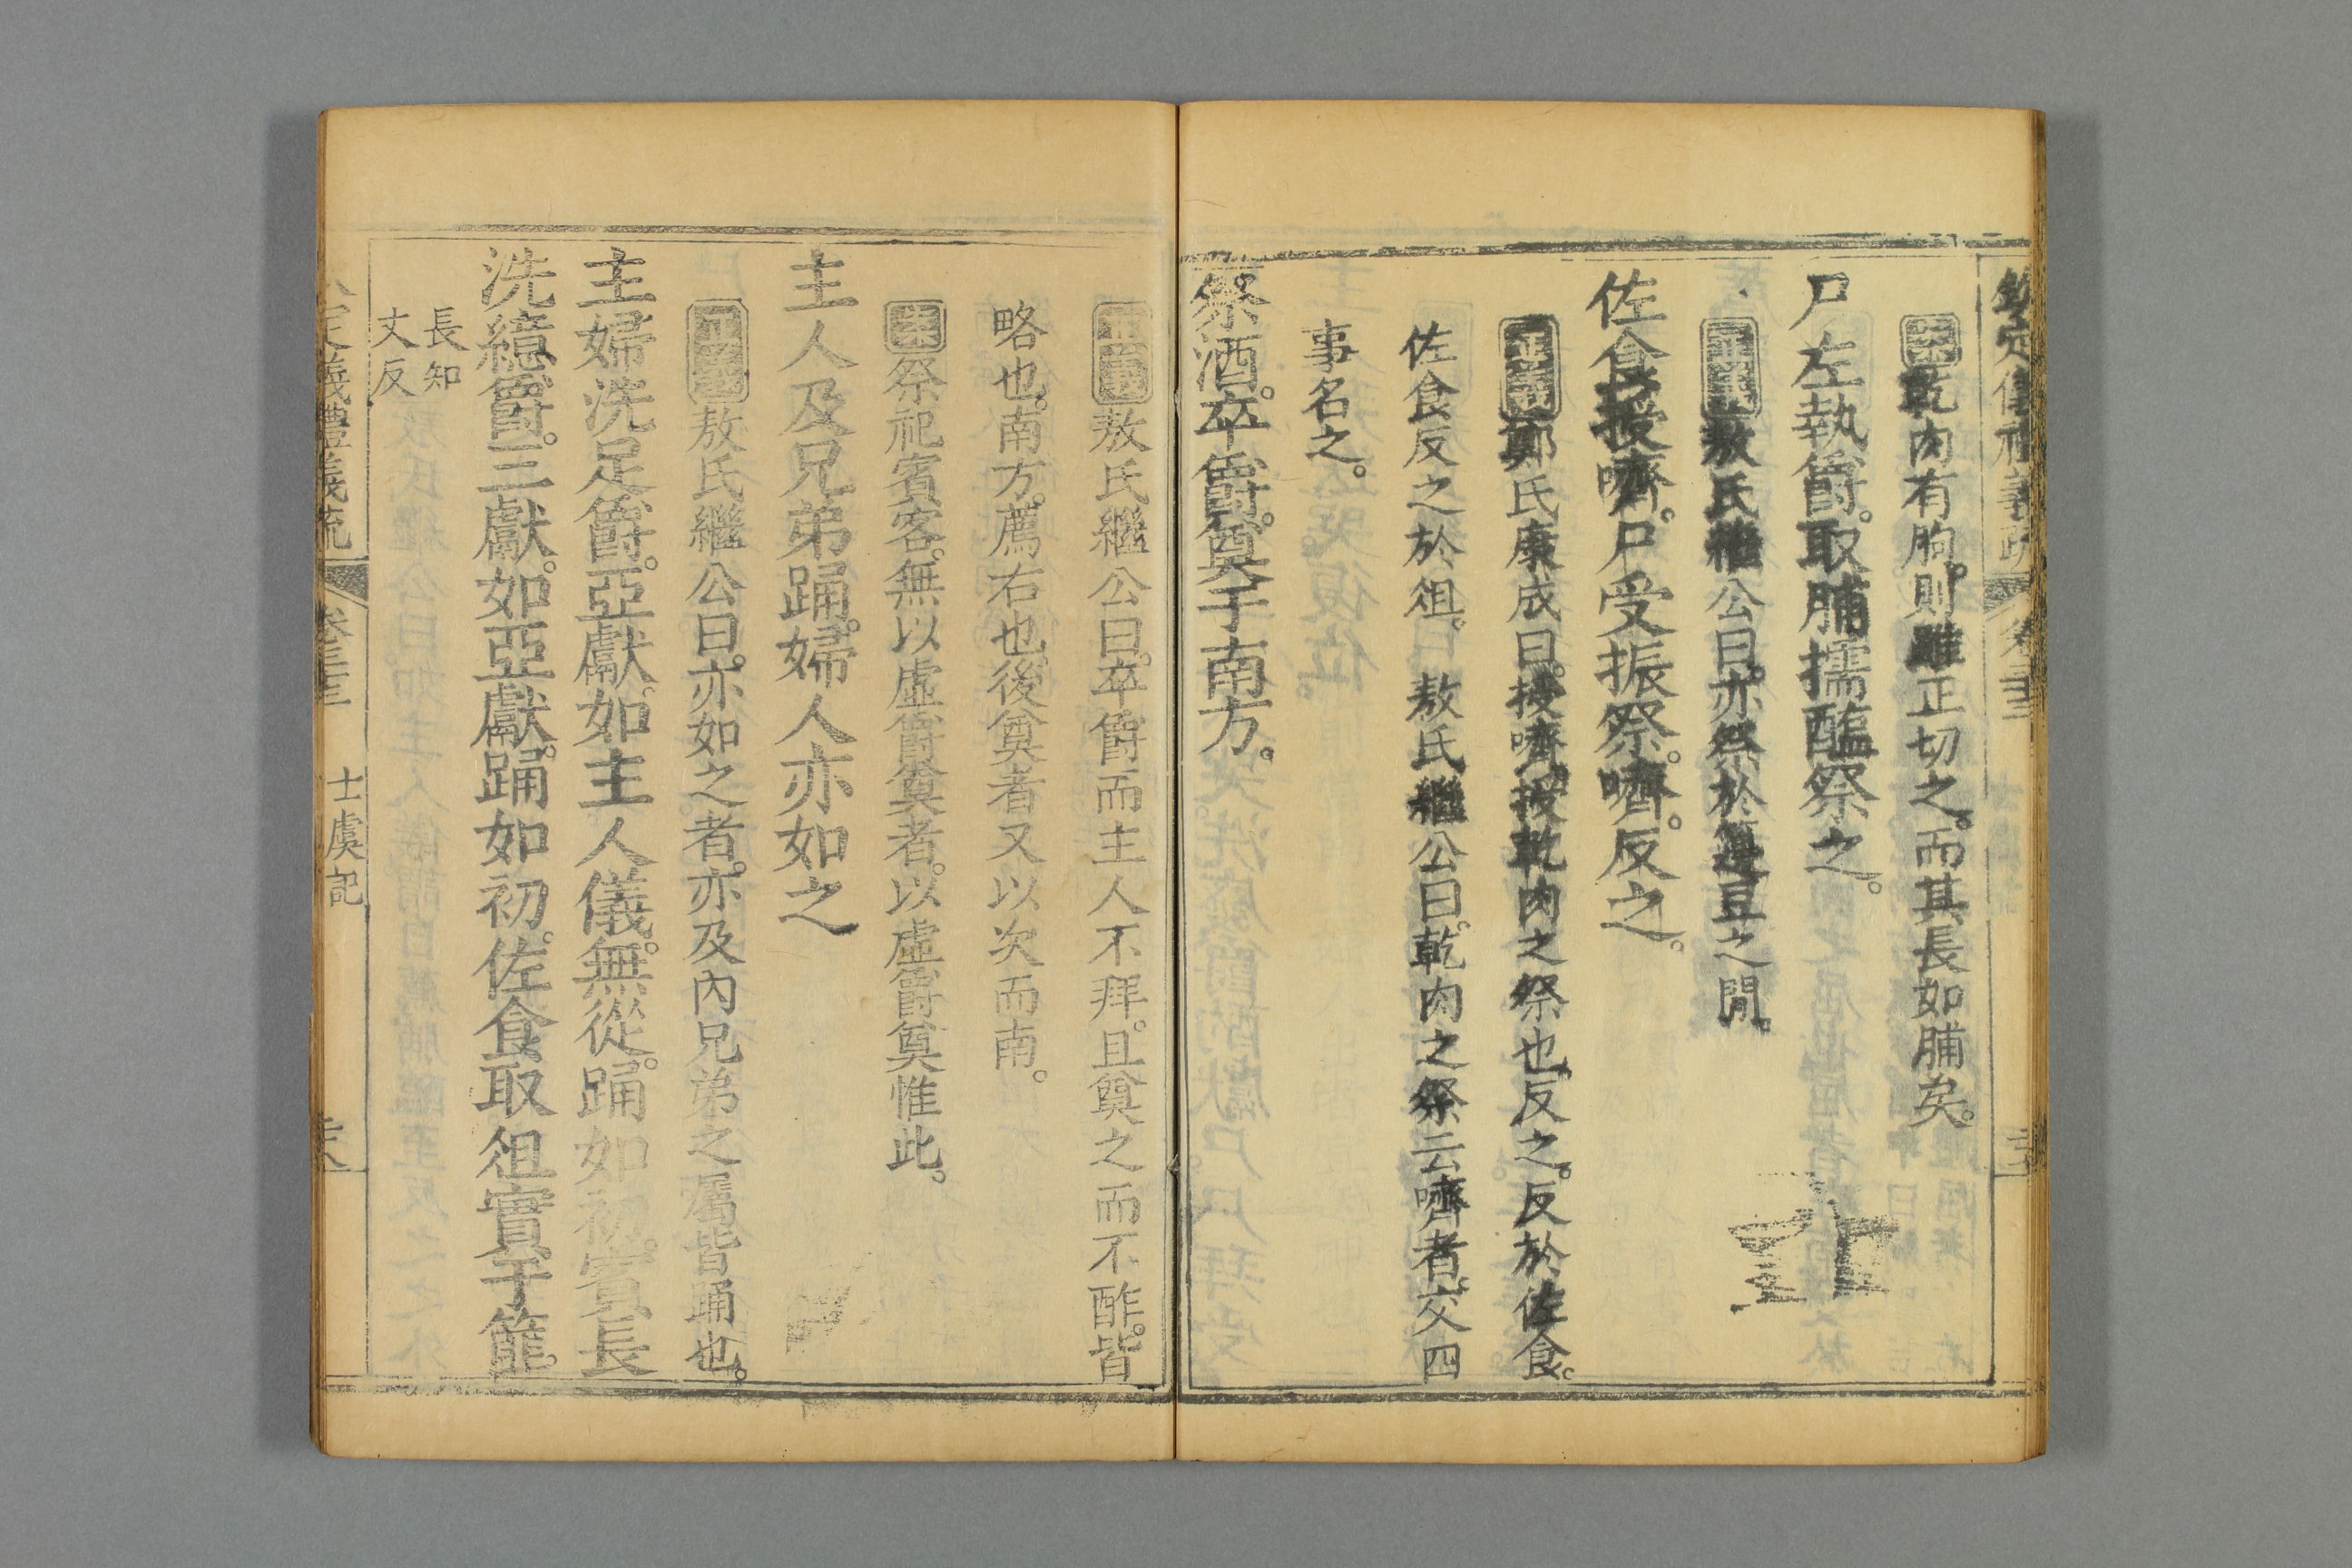 欽定儀禮義疏 卷三十三
案乾肉有朐則雖正切之而其長如脯矣
尸左執爵取脯擩醢祭之
正義敖氏繼公曰亦祭於籩豆之閒
佐食授嚌尸受振祭嚌反之
正義鄭氏康成曰授嚌授乾肉之祭也反之反於佐食
佐食反之於俎 敖氏繼公曰乾肉之祭云嚌者交四
事名之
祭酒卒爵奠于南方
正義敖氏繼公曰卒爵而主人不拜且奠之而不酢皆
略也南方薦右也後奠者又以次而南
案祭祀賓客無以虛爵奠者以虛爵奠惟此
主人及兄弟踊婦人亦如之
正義敖氏繼公曰亦如之者亦及內兄弟之屬皆踊也
主婦洗足爵亞獻如主人儀無從踊如初賓長
洗繶爵三獻如亞獻踊如初佐食取俎實于篚
長知
丈反
義禮義疏 卷三十三 士虞記